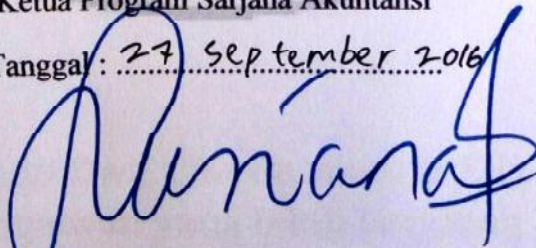 Ketua Program Sarjana Akuntansi
Tanggal : 27 September 2016